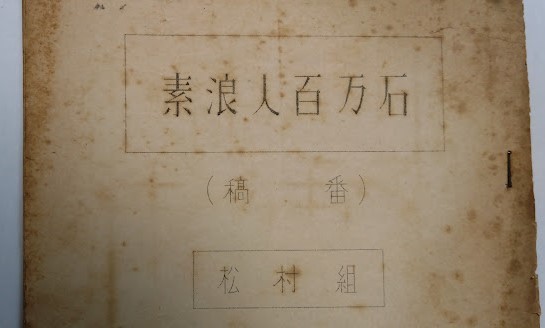 素浪人百万石
（稿　番）
松村組